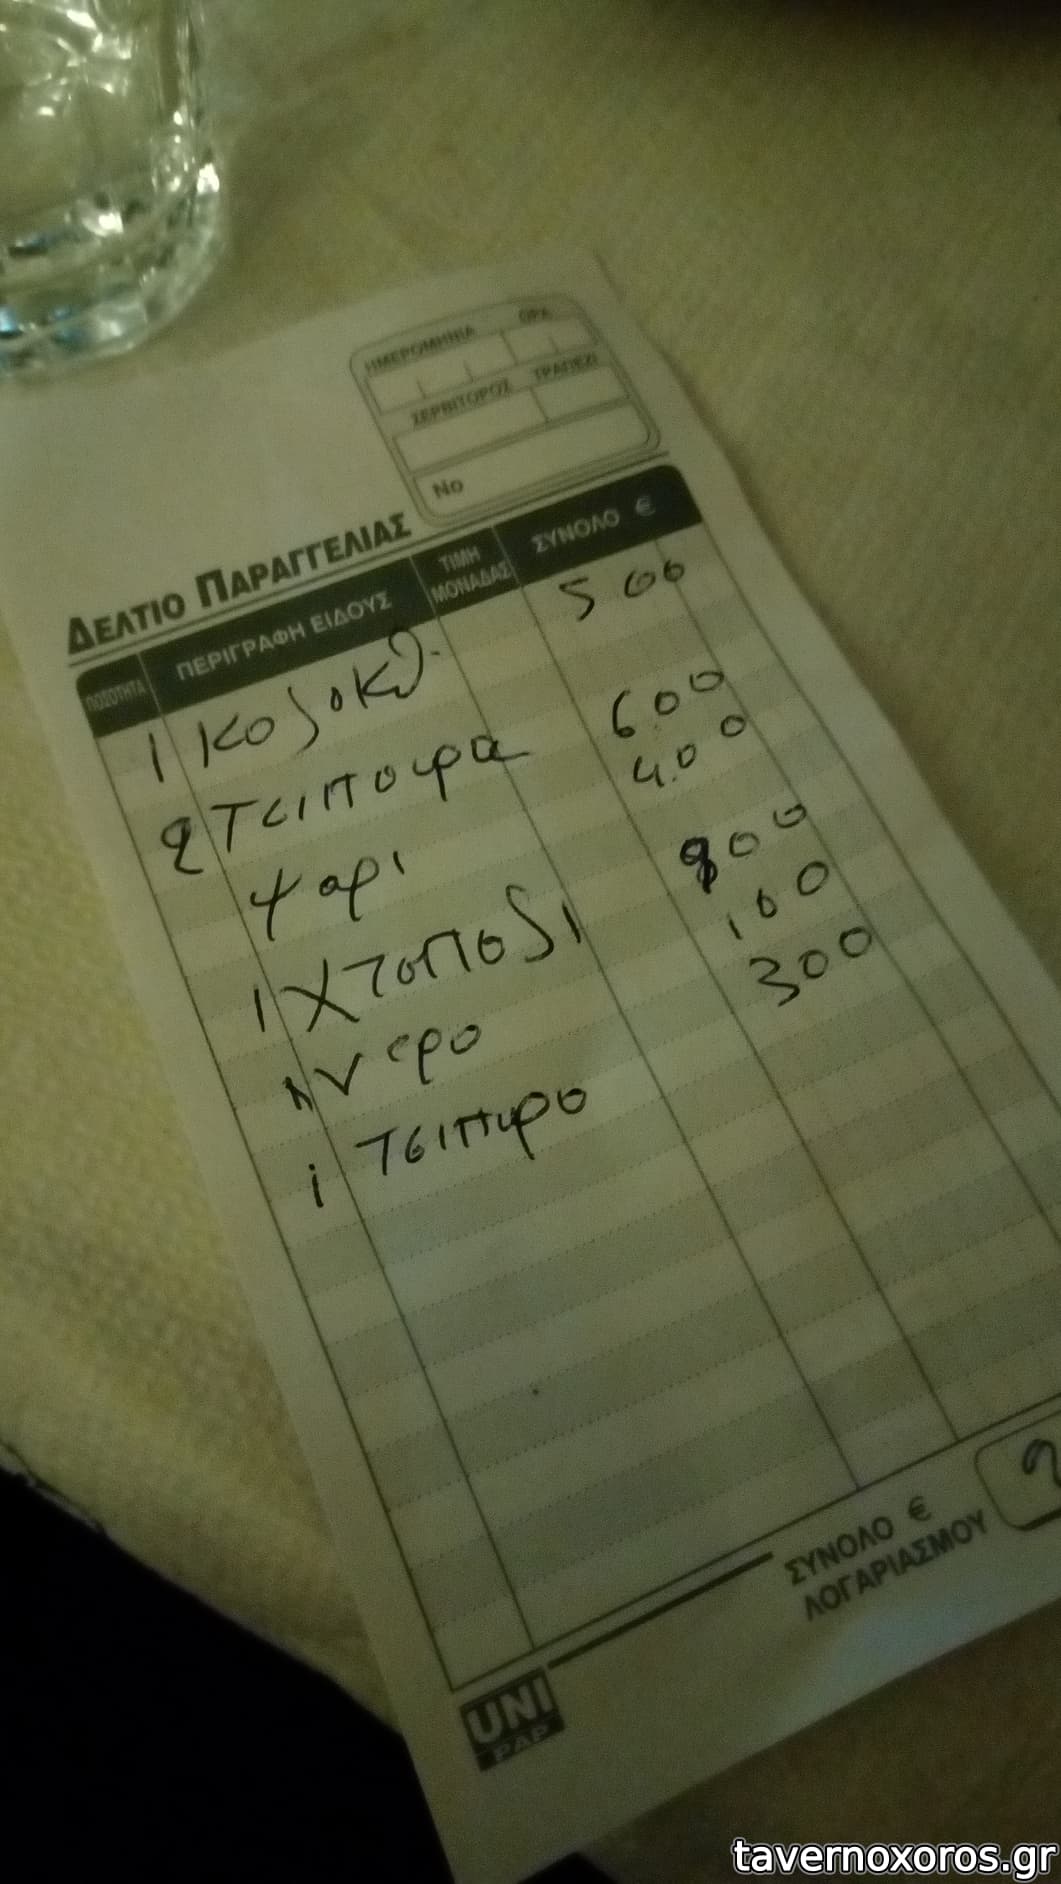 ΗΜΕΡΟΜΗΝΙΑ ΩΡΑ
ΣΕΡΒΙΤΟΡΟΣ ΤΡΑΠΕΖΙ
No
ΔΕΛΤΙΟ ΠΑΡΑΓΓΕΛΙΑΣ
ΠΟΣΟΤΗΤΑ ΠΕΡΙΓΡΑΦΗ ΕΙΔΟΥΣ ΤΙΜΗ ΜΟΝΑΔΑΣ ΣΥΝΟΛΟ €
1 κολοκυ. 500
2 τσιπουρα 600
ψαρι 4.00
1 χταποδι 900
1 νερο 100
1 τσιπυρο 300
ΣΥΝΟΛΟ €
ΛΟΓΑΡΙΑΣΜΟΥ
UNI
PAP
tavernoxoros.gr